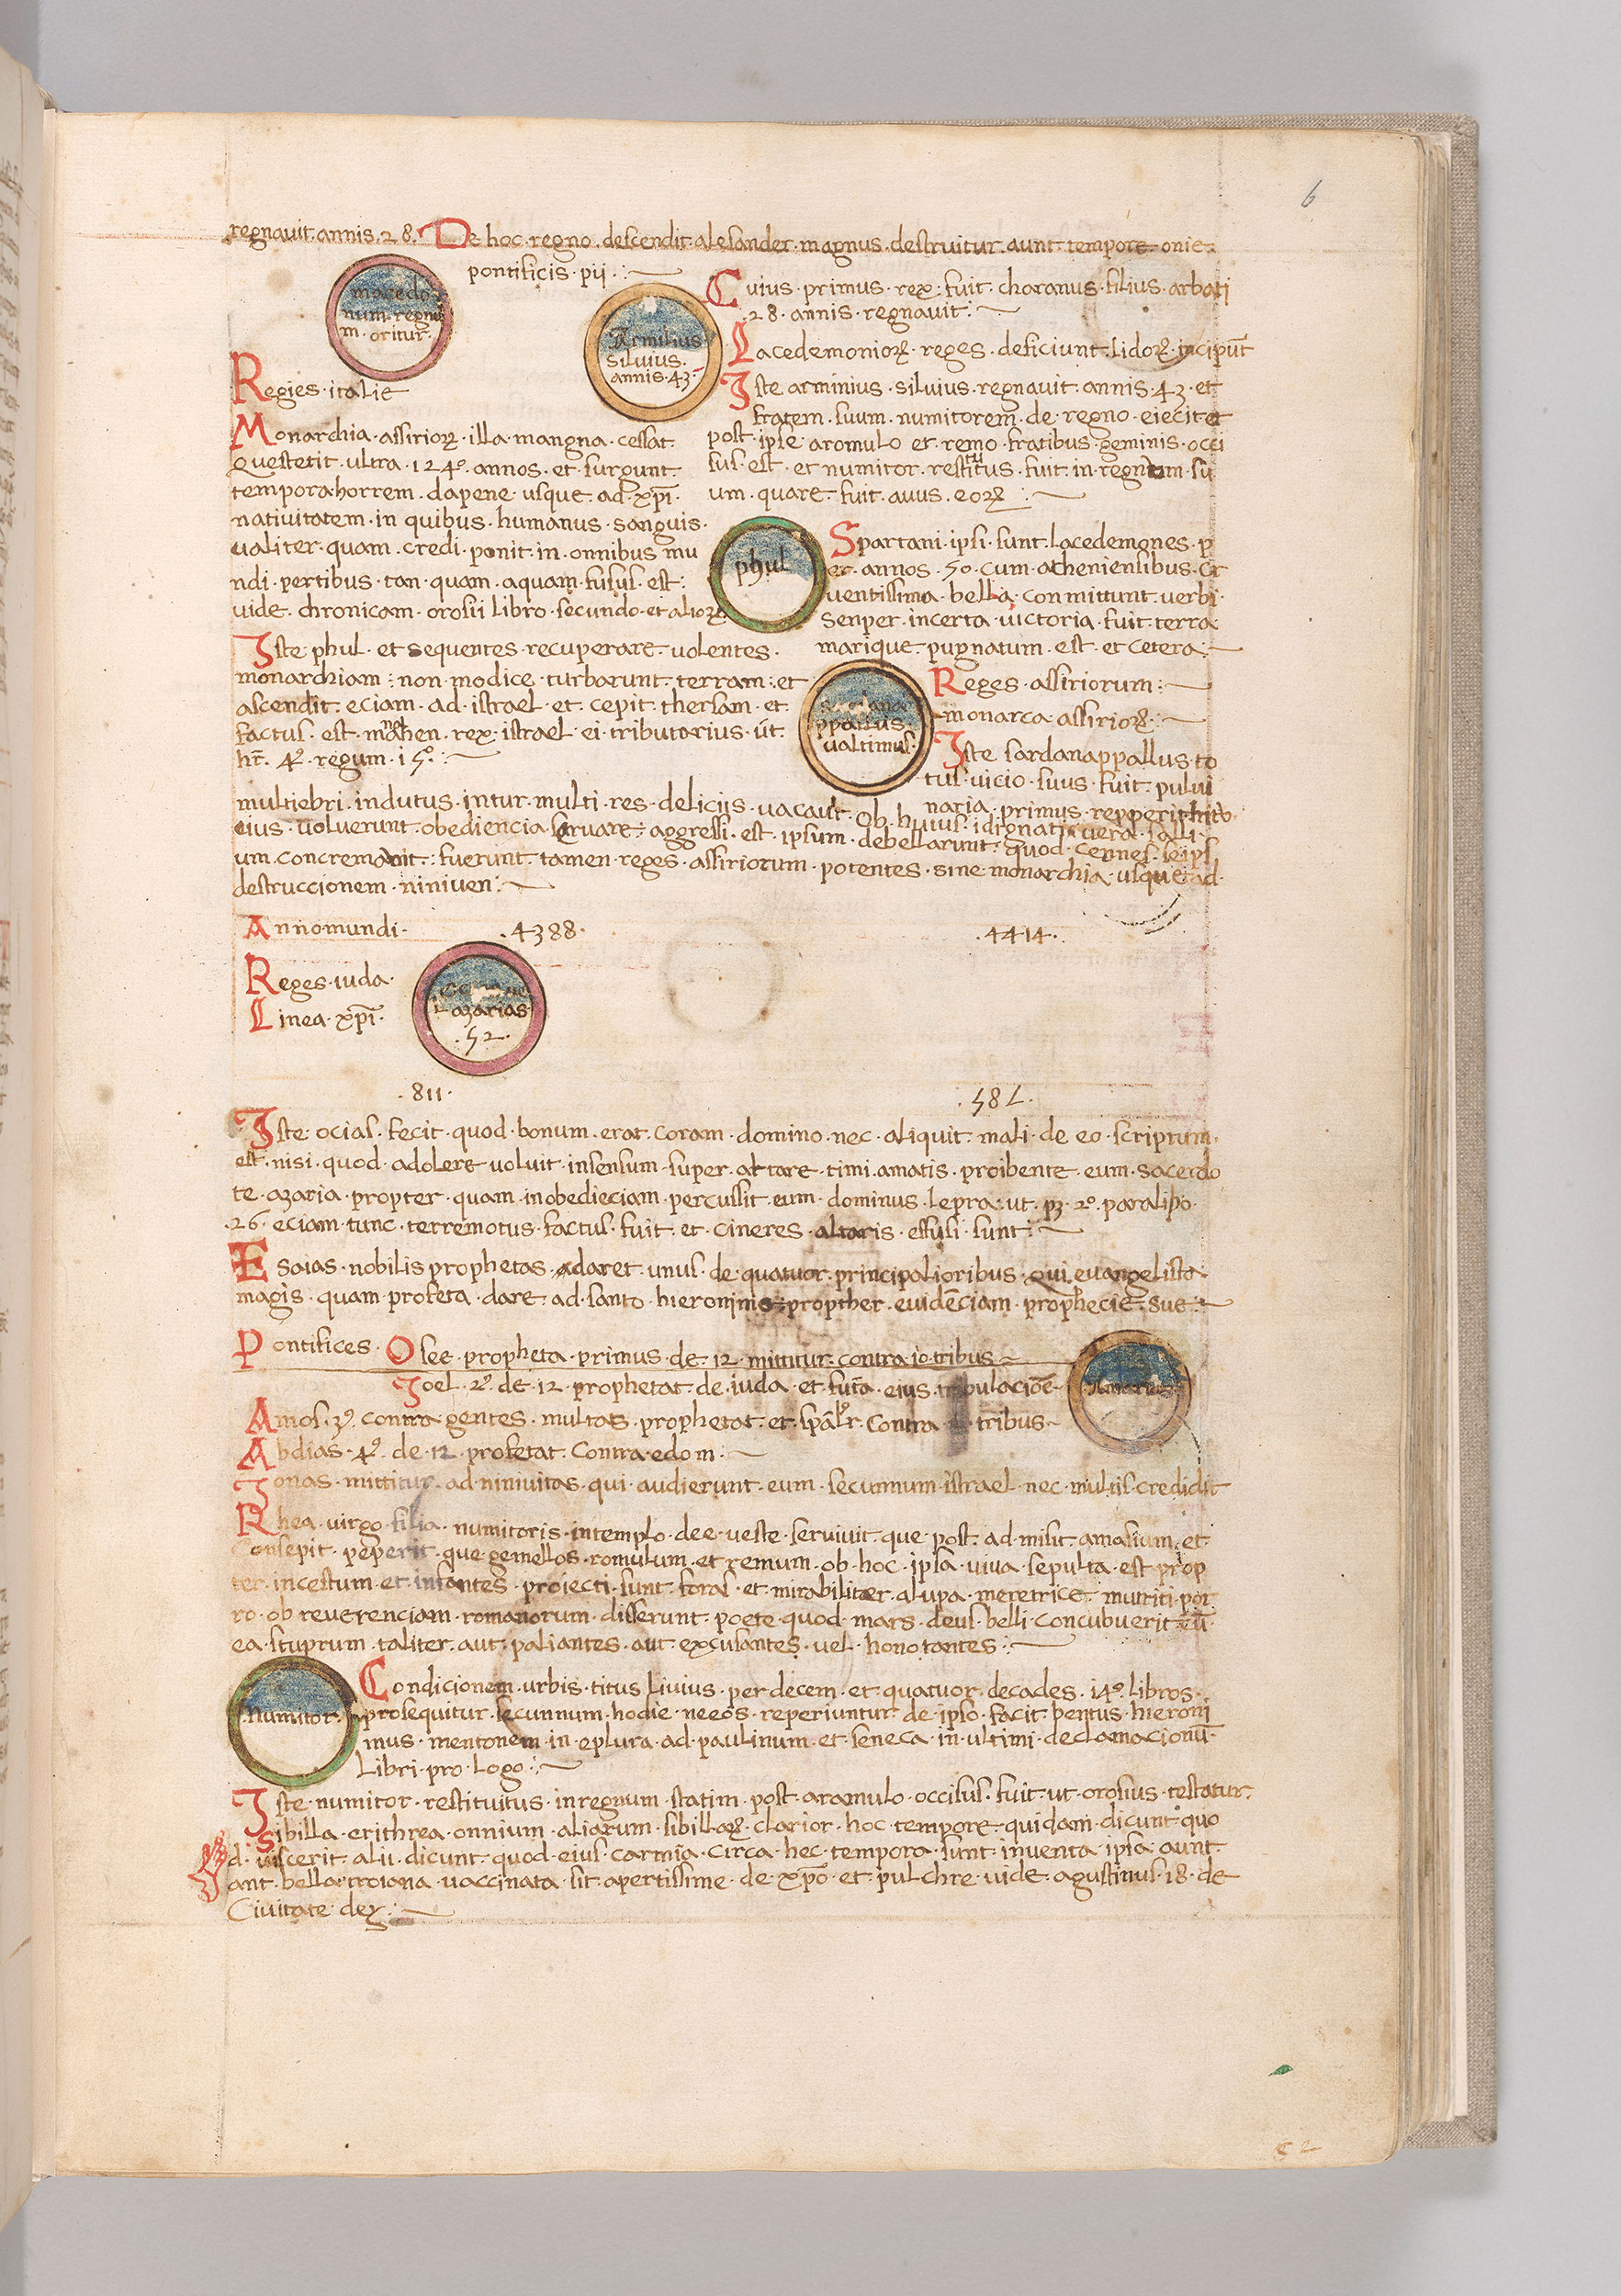 6
regnauit. annis. 28. De hoc. regno. descendit. alesander. magnus. destruitur. aunt. tempore. onie.
pontificis. pii.
macedo
num. regnu
m. oritur.
Armilius
siluius.
annis. 43.
Cuius. primus. rex. fuit. charanus. filius. arbati
.28. annis. regnauit.
Lacedemonioꝝ. reges. deficiunt. lidoꝝ. incipiūt
Regies. italie
Iste arminius. siluius. regnauit. annis. 43. et
fratem. suum. numitorem. de. regno. eiecit et
post. ipse aromulo et. remo. fratibus. geminis. occi
sus. est. et numitor. restitutus. fuit. in. regnum. su
um. quare. fuit. auus. eoꝝ
Monarchia. assirioꝝ. illa. mangna. cessat.
Que stetit. ultra. 1240. annos. et. surgunt.
tempora horrem. dapene usque. ad. xp̄i.
natiuitatem. in quibus. humanus. sanguis.
ualiter. quam. credi. ponit. in. onnibus mu
ndi. pertibus. tan. quam. aquam. fusus. est.
uide. chronicam. orosii libro. secundo. et alioꝝ
phul
Spartani. ipsi. sunt. lacedemones. p
er. annos. 50. cum. atheniensibus. cr
uentissima. bella. conmittunt. uerbi.
senper. incerta. uictoria. fuit. terra
marique. pugnatum. est. et cetera.
Iste phul. et sequentes. recuperare. uolentes.
monarchiam. non. modice. turbarunt. terram. et
ascendit. eciam. ad. istrael. et. cepit. thersam. et.
factus. est. manahen. rex. istrael. ei. tributarius. ūt.
hr̄. 4º. regum. 15º.
ppallus.
ualtimus.
Reges. assiriorum.
monarca assirioꝝ.
Iste sardanappallus. to
tus. uicio. suus. fuit. pului
naria. primus. repperit hito.
multiebri. indutus. intur. multi. res. deliciis. uacauit. ob. huius. idignati. uera. salli.
eius. uoluerunt. obediencia. seruare. aggressi. est. ipsum. debellarunt. quod. cernes. seips
um. concremauit. fuerunt. tamen. reges. assiriorum. potentes. sine monarchia. usque ad.
destruccionem. niniuen.
Anno mundi. .4388. .4414.
Reges. iuda.
Linea. xp̄i.
azarias
.52.
.811. .587.
Iste ocias. fecit. quod. bonum. erat. coram. domino. nec. aliquit. mali. de eo. scriptum.
est. nisi. quod. adolere uoluit. insensum. super. altare. timi. amatis. proibente. eum. sacerdo
te. azaria. propter. quam. inobedieciam. percussit. eum. dominus. lepra. ut. pꝫ. 2º. paralipo.
.26. eciam. tunc. terremotus. factus. fuit. et. cineres. altaris. effusi. sunt.
Esaias. nobilis prophetas. adaret. unus. de. quatuor. principalioribus. qui euangelista.
magis. quam. profeta. dare. ad. santo. hieronimo. propther. euidēciam. prophecie. sue.
Pontifices. Osee. propheta. primus. de. 12. mittitur. contra. io. tribus
Ioel. 2º. de. 12. prophetat. de. iuda. et. futā. eius. tribulaciōe.
Amos. 3º. contra gentes. multas. prophetat. et. sp̄alr̄. contra tribus
Abdias. 4º. de. 12. profetat. contra. edom.
Ionas. mittitur. ad. niniuitas. qui. audierunt. eum. secunnum. istrael. nec. multis. credidit
Rhea. uirgo. filia. numitoris. intemplo. dee. ueste. seruiuit. que. post. ad. misit. amasium. et.
Consepit. peperit. que. gemellos. romulum. et remum. ob. hoc. ipsa. uiua. sepulta. est. prop
ter. incestum. et. infantes. proiecti. sunt. foras. et. mirabiliter. alupa. meretrice. nutriti. por
ro. ob reuerenciam. romanorum. disserunt. poete. quod. mars. deus. belli. concubuerit. cū.
ea. stuprum. taliter. aut. paliantes. aut. excusantes. uel. honorantes.
Numitor.
Condicionem. urbis. titus liuius. per decem. et. quatuor. decades. 140. libros.
prosequitur. secunnum. hodie. neeos. reperiuntur. de. ipso. facit. bentus. hieroni
mus. mentonem. in. eplura. ad. paulinum. et. seneca. in. ultimi. declamacionū.
Libri. pro. logo.
Iste. numitor. restituitus. inregnum. statim. post. aramulo. occisus. fuit. ut. orosius. testatur.
Sibilla. erithrea. onnium. aliarum. sibillaꝝ. clarior. hoc. tempore. quidam. dicunt. quo
d. uiscerit. alii. dicunt. quod. eius. carmīa. circa. hec. tempora. sunt. inuenta. ipsa. aunt.
ant. bella. troiana. uaccinata. sit. apertissime. de. xp̄o. et. pulchre. uide. agustinus. 18. de
Ciuitate dei.
52